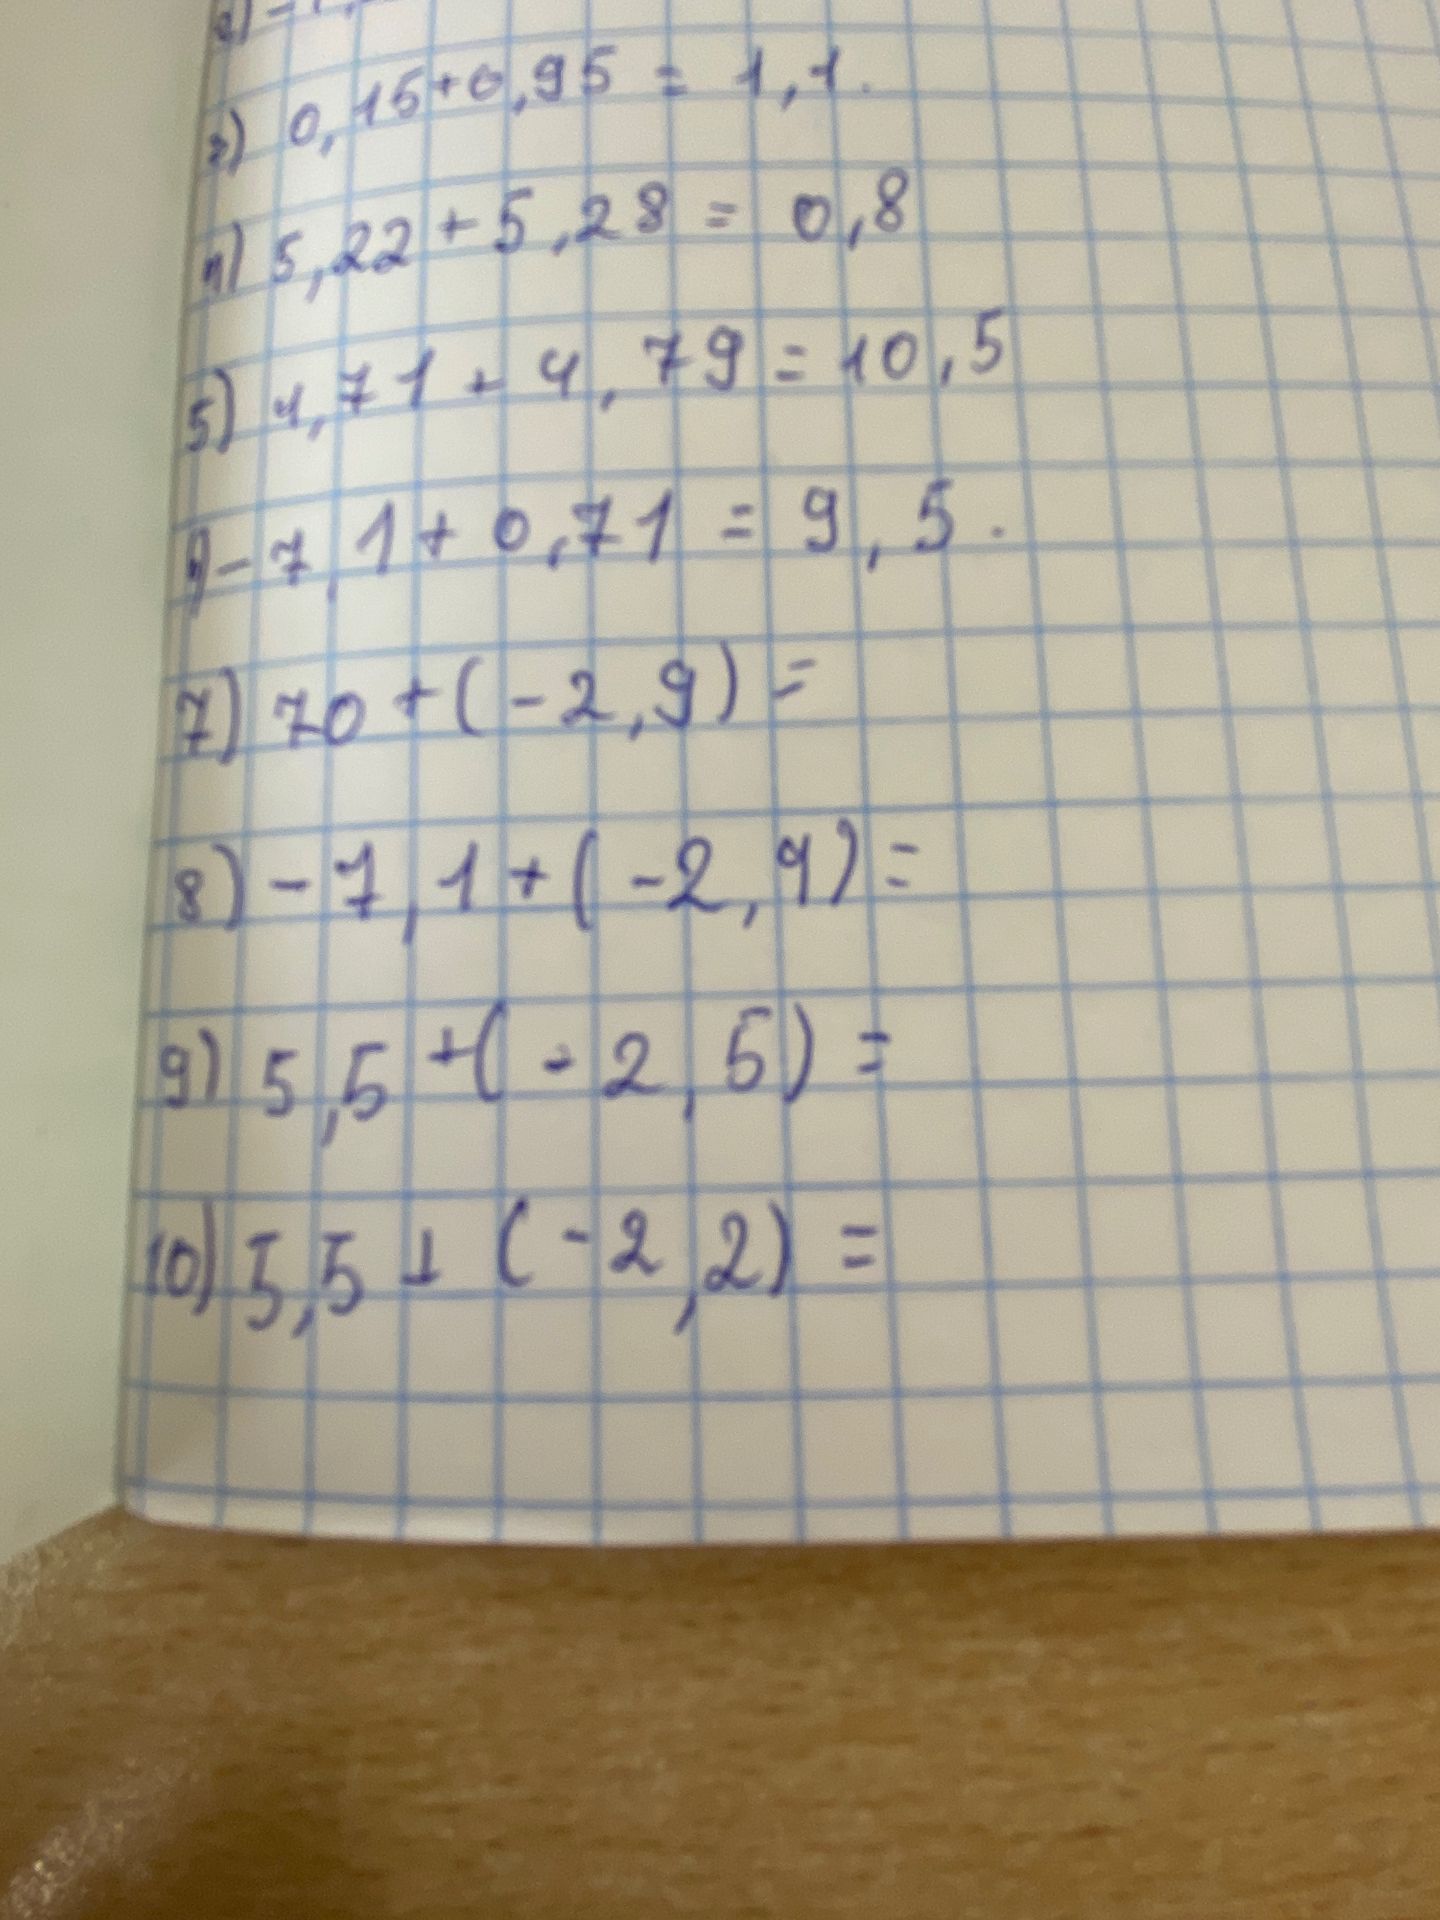 3) 0,15+0,95 = 1,1.
4) 5,22+5,28 = 0,8
5) 4,71 + 4,79 = 10,5
6) -7,1+0,71 = 9,5.
7) 70 +(-2,9) =
8) -7,1 +(-2,9) =
9) 5,5 +(-2,5) =
10) 5,5 + (-2,2) =